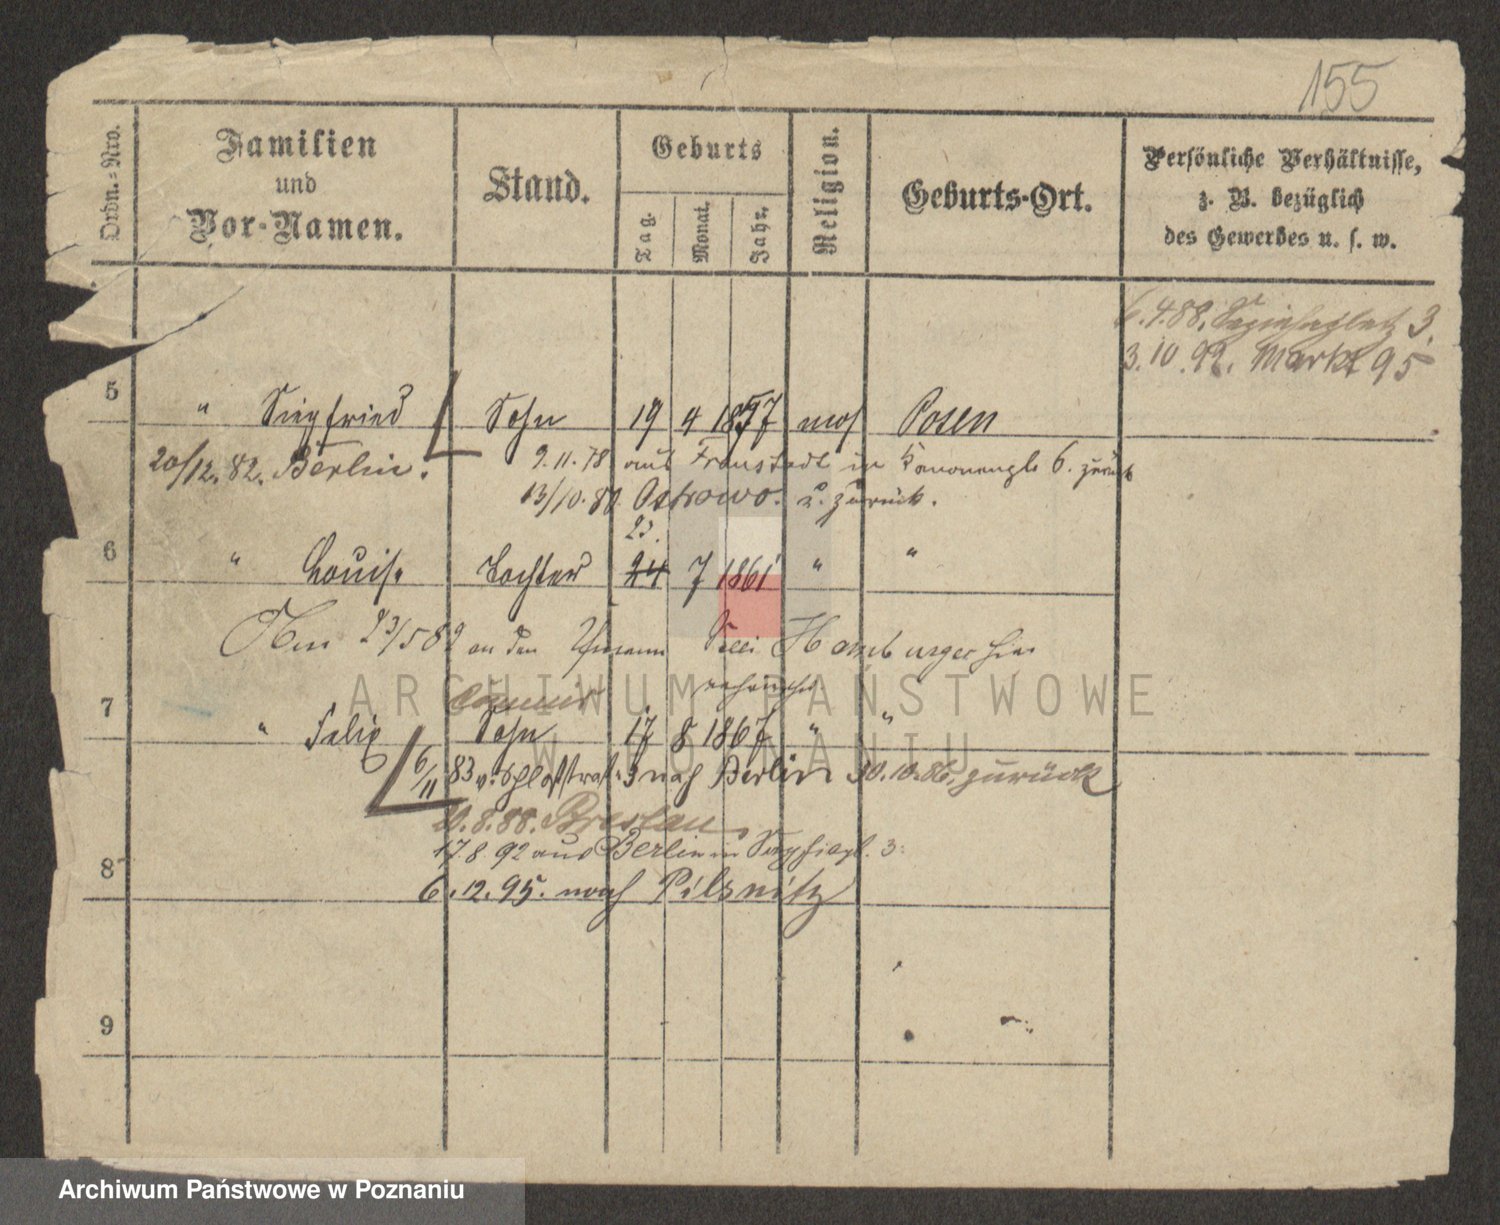 155
Ordn.=Nro.
Familien
und
Vor-Namen.
Stand.
Geburts
Tag.
Monat.
Jahr.
Religion.
Geburts-Ort.
Persönliche Verhältnisse,
z. B. bezüglich
des Gewerbes u. s. w.
6.4.88. Sapiehaplatz 3
3.10.92. Markt 95
5 " Siegfried Sohn 19 4 1857 mos Posen
20/12.82. Berlin. 9.11.78 aus Fraustadt in Kanonenpl. 6. zurück
13/10.80 Ostrowo. u. zurück.
23.
6 " Louise Tochter 24 7 1861 " "
Am 23/5 82 an den Hamburger hier
ARCHIWUM PAŃSTWOWE
W POZNANIU
Commis
7 " Felix Sohn 17 8 1867 " "
6/11 83 v. Schloßstraße 3 nach Berlin 30.10.86. zurück
20.8.88. Breslau.
17.8 92 aus Berlin in Sapiehapl. 3.
8 6.12.95. nach Pilsnitz
9
Archiwum Państwowe w Poznaniu